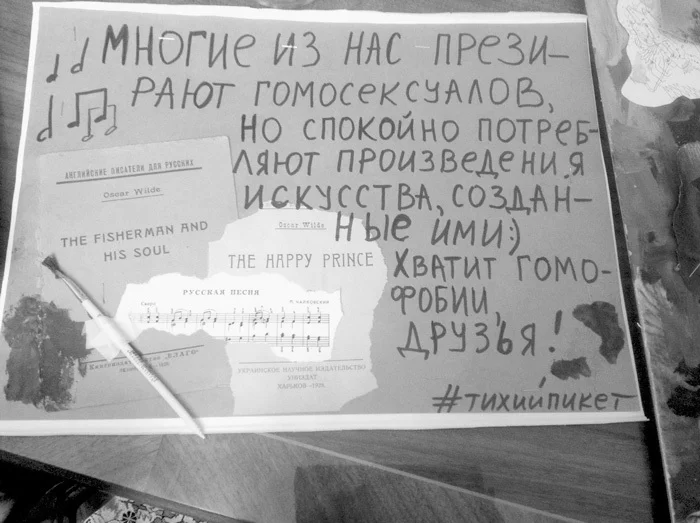 МНОГИЕ ИЗ НАС ПРЕЗИ-
РАЮТ ГОМОСЕКСУАЛОВ,
НО СПОКОЙНО ПОТРЕБ-
ЛЯЮТ ПРОИЗВЕДЕНИЯ
ИСКУССТВА, СОЗДАН-
НЫЕ ИМИ:)
ХВАТИТ ГОМО-
ФОБИИ,
ДРУЗЬЯ!
#ТИХИЙПИКЕТ
АНГЛИЙСКИЕ ПИСАТЕЛИ ДЛЯ РУССКИХ
Oscar Wilde
THE FISHERMAN AND
HIS SOUL
Oscar Wilde
THE HAPPY PRINCE
РУССКАЯ ПЕСНЯ
П. ЧАЙКОВСКИЙ
УКРАИНСКОЕ НАУЧНОЕ ИЗДАТЕЛЬСТВО
ХАРЬКОВ